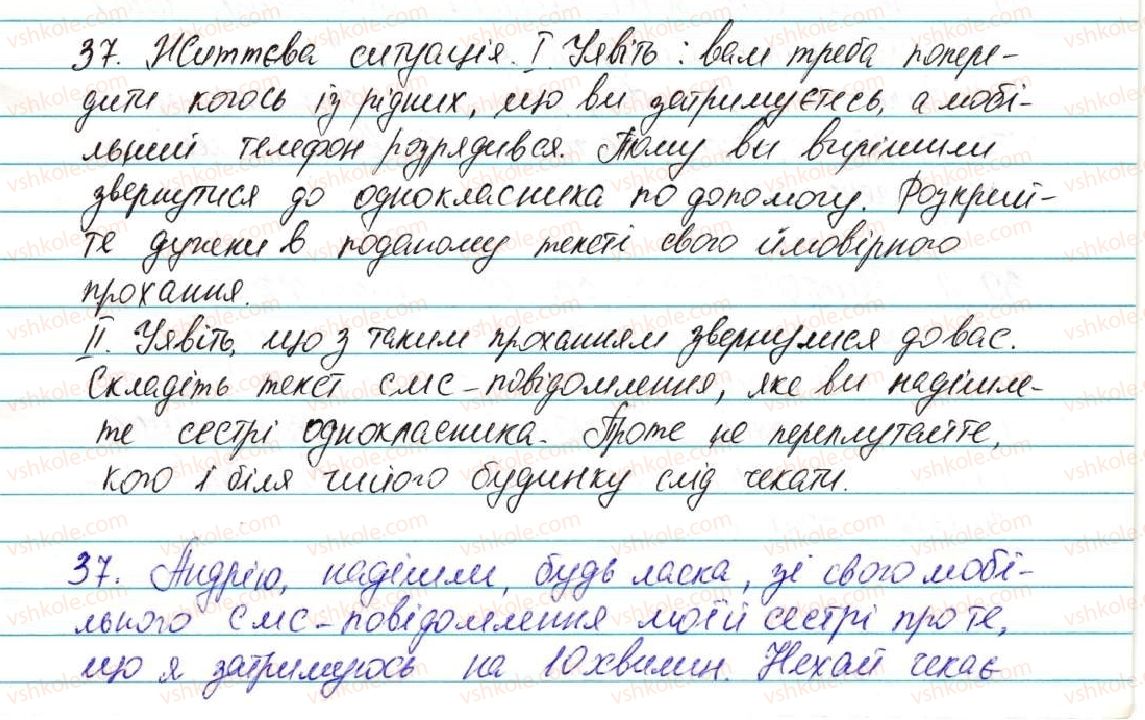 37. Життєва ситуація. I. Уявіть: вам треба попере-
дити когось із рідних, що ви затримуєтесь, а мобі-
льний телефон розрядився. Тому ви вирішили
звернутися до однокласника по допомогу. Розкрий-
те дужки в поданому тексті свого ймовірного
прохання.
II. Уявіть, що з таким проханням звернулися до вас.
Складіть текст смс-повідомлення, яке ви надішле-
те сестрі однокласника. Проте не переплутайте,
кого і біля чийого будинку слід чекати.
37. Андрію, надішли, будь ласка, зі свого мобі-
льного смс-повідомлення моїй сестрі про те,
що я затримуюсь на 10 хвилин. Нехай чекає